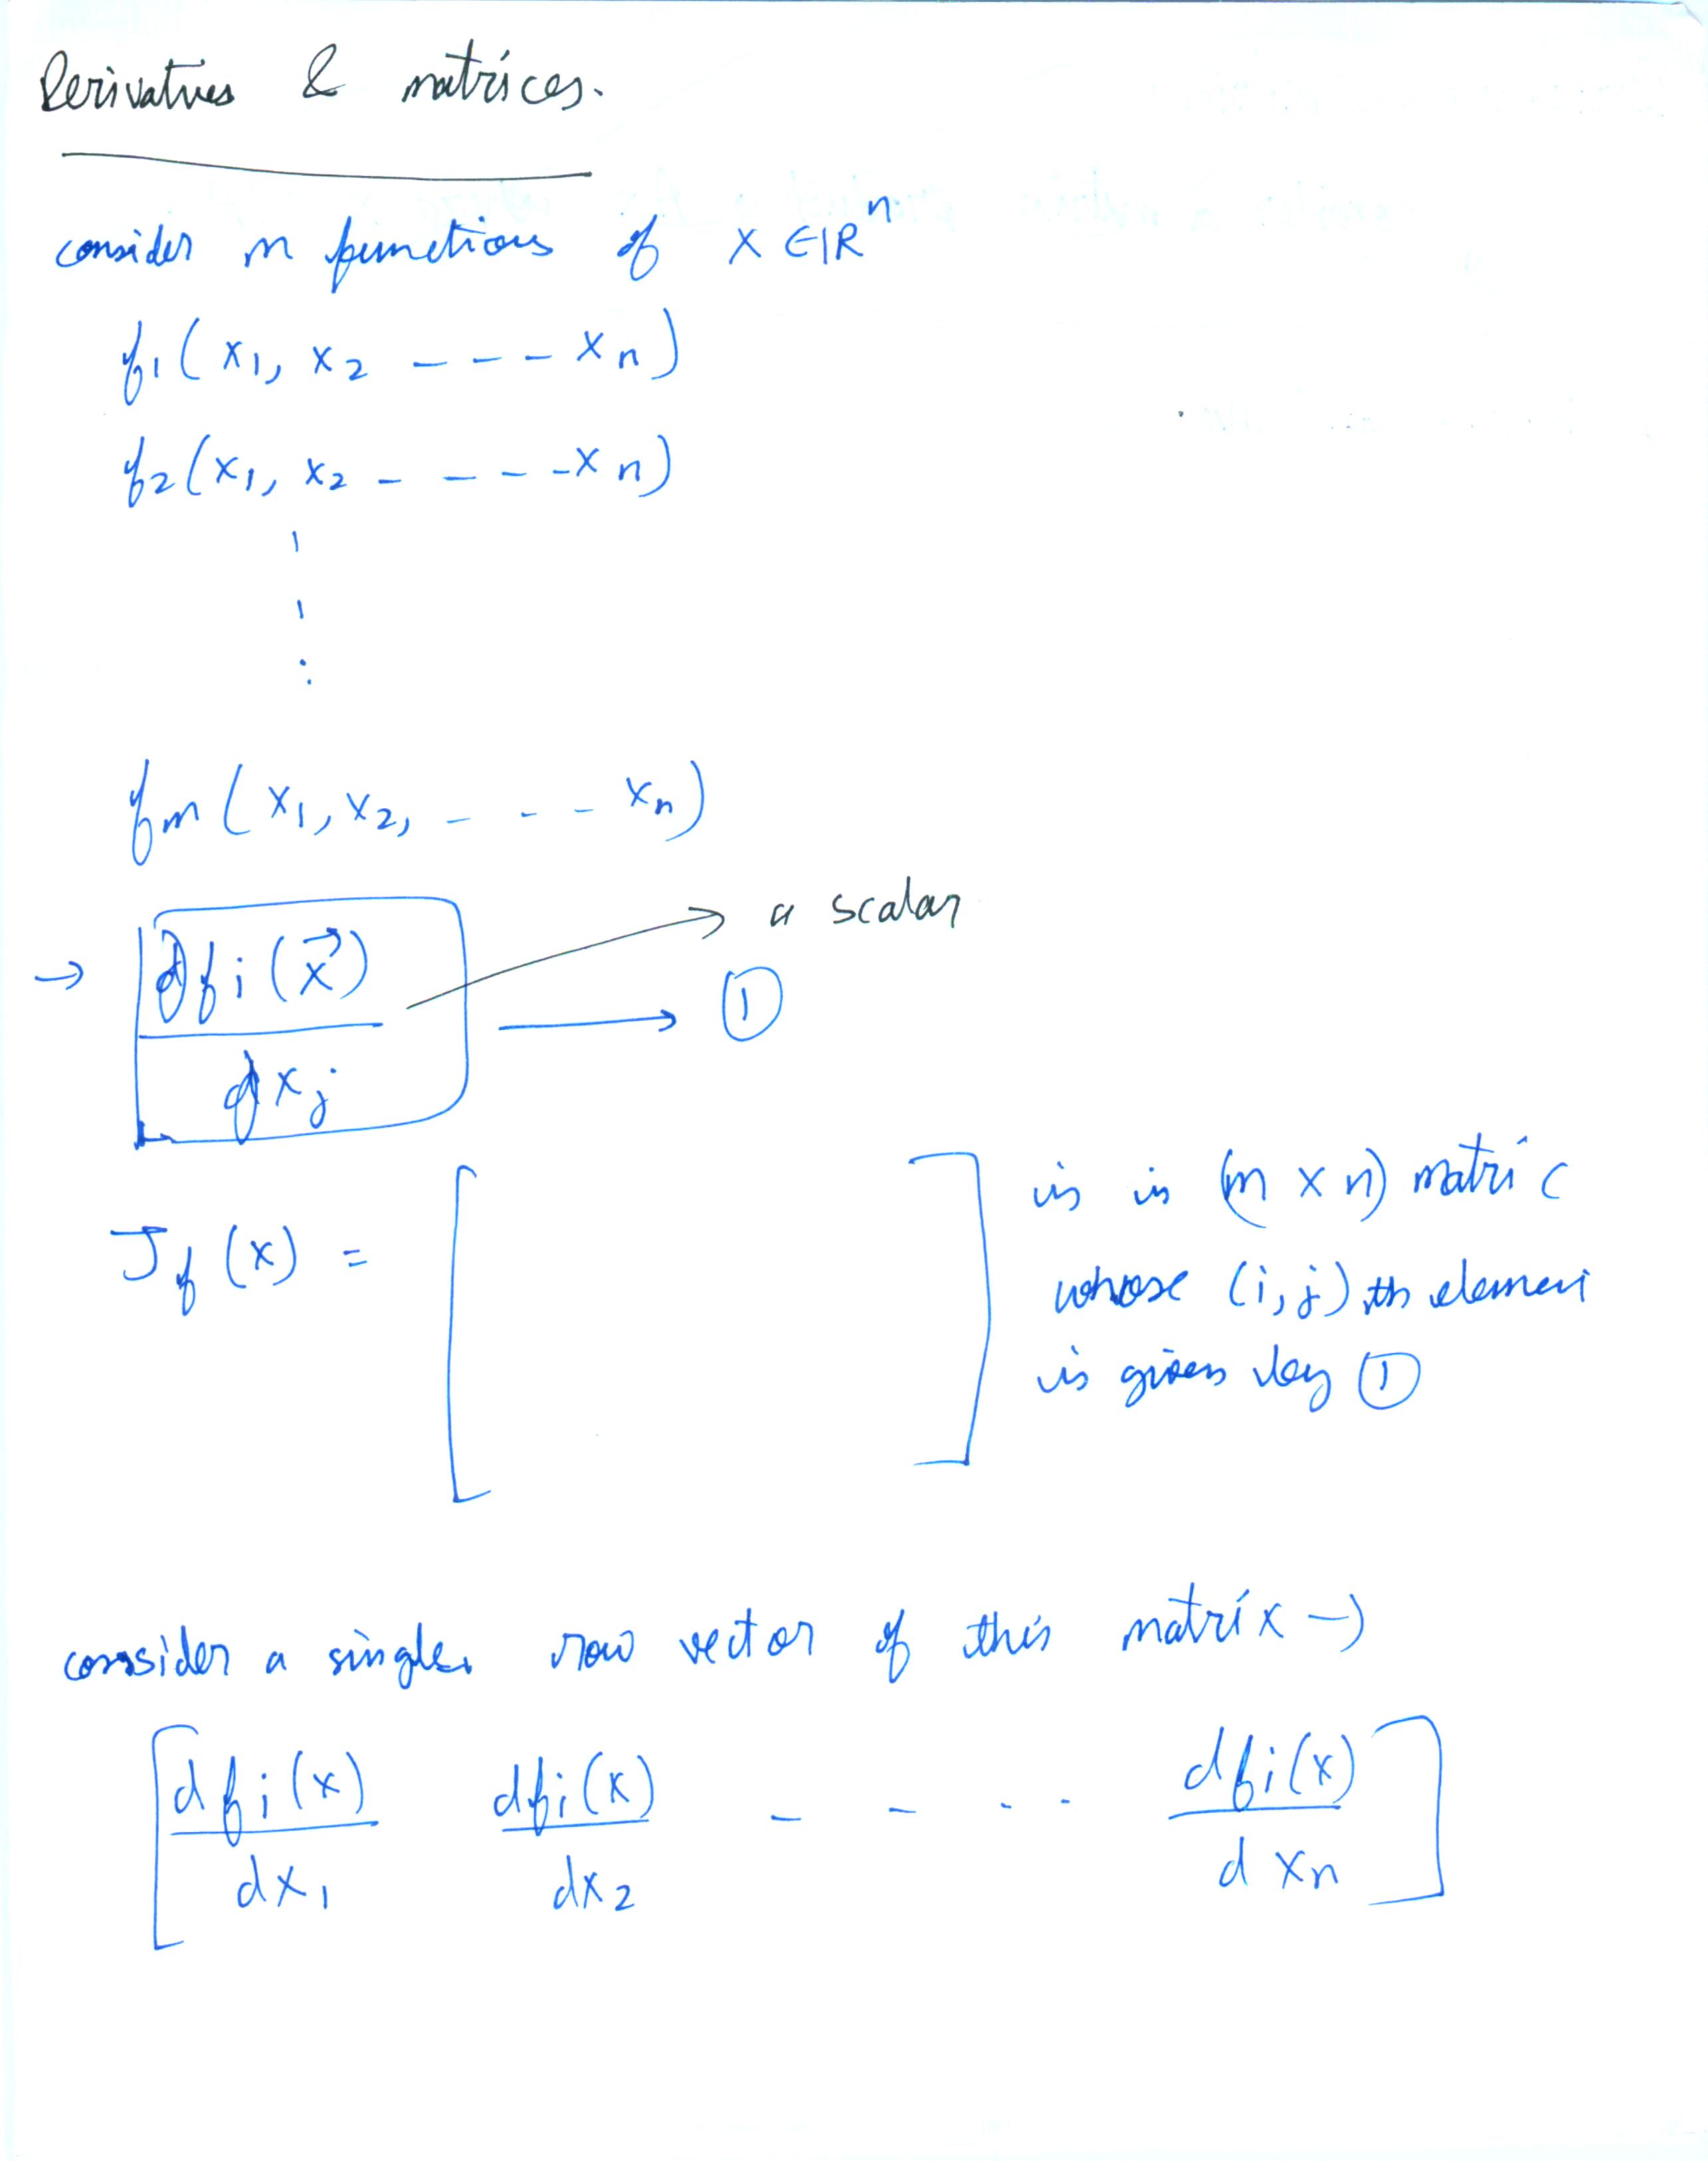 Derivatives & matrices.
consider m functions of x ∈ ℝⁿ
f₁(x₁, x₂ - - - xₙ)
f₂(x₁, x₂ - - - - xₙ)
fₘ(x₁, x₂, - - - xₙ)
→ ∂fᵢ(x⃗) → a scalar
∂xⱼ → ①
J_f(x) = [ ] is in (m x n) matric
whose (i,j) th elemen
is given by ①
consider a single row vector of this matrix →
[ dfᵢ(x) dfᵢ(x) - - - - dfᵢ(x) ]
dx₁ dx₂ dxₙ